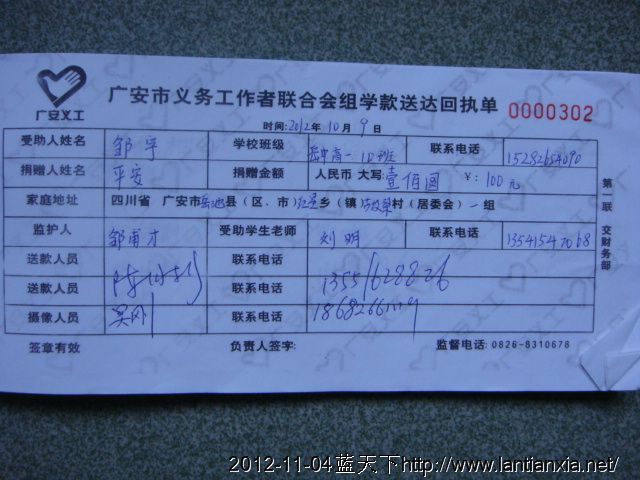 广安义工
广安市义务工作者联合会组学款送达回执单 0000302
时间:2012年10月9日
受助人姓名 邹宇 学校班级 岳中高一10班 联系电话 15282654090
捐赠人姓名 平安 捐赠金额 人民币 大写:壹佰圆 ¥:100元
家庭地址 四川省 广安市岳池县(区、市) 乡(镇) 村(居委会)一组
监护人 邹甫才 受助学生老师 刘明 联系电话 13541547068
送款人员 联系电话 13551628826
送款人员 联系电话
摄像人员 吴刚 联系电话
签章有效 负责人签字: 监督电话:0826-8310678
第一联 交财务部
2012-11-04蓝天下http://www.lantianxia.net/